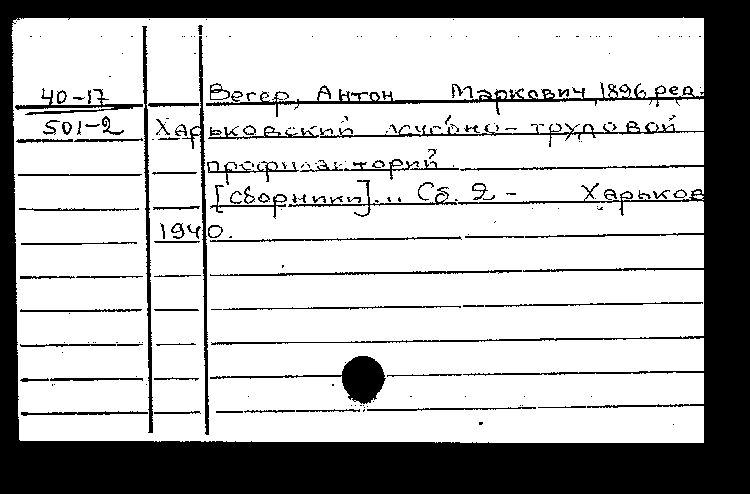 40-17 Вегер, Антон Маркович, 1896, ред.
501-2 Харьковский лечебно-трудовой
профилакторий.
[сборники]... Сб. 2 - Харьков
1940.